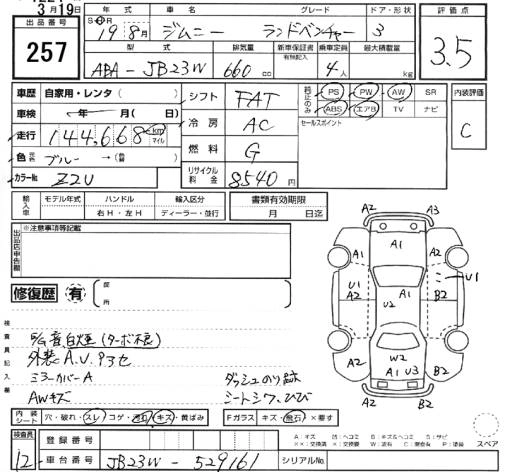 3月19日
出品番号
257
年式 車名 グレード ドア・形状
S・H・R 19年8月 ジムニー ランドベンチャー 3
型式 排気量 新車保証書 有無記入 乗車定員 最大積載量
ABA-JB23W 660cc 4人 kg
評価点
3.5
車歴 自家用・レンタ( )
車検 年 月( 日)
走行 144,668 km マイル
色 元色 ブルー →(替 )
カラーNo. Z2U
シフト FAT
冷房 AC
燃料 G
リサイクル料金 8540円
純正のみ PS PW AW SR
ABS エアB TV ナビ
セールスポイント
内装評価
C
輸入車 モデル年式 ハンドル 輸入区分
右H・左H ディーラー・並行
書類有効期限
月 日迄
出品店申告欄
※注意事項等記載
修復歴 有 箇所
検査員記入欄
E/G音、白煙(ターボ不良)
外装A.U.Pヨセ
ミラーカバーA
AWキズ
ダッシュのり跡
シートシワ、ひび
A2 A3
A1
A1 A2
U1
U1
A2
B2
U2
A1
W2
A1 U3
A2 B2
A2 B2
スペア
内装シート 穴・破れ・スレ・コゲ・汚れ・キズ・黄ばみ
Fガラス キズ・飛石・×要す
A:キズ U:ヘコミ B:キズ&ヘコミ S:サビ
検査員 12
登録番号
車台番号 JB23W-529161
シリアルNo.